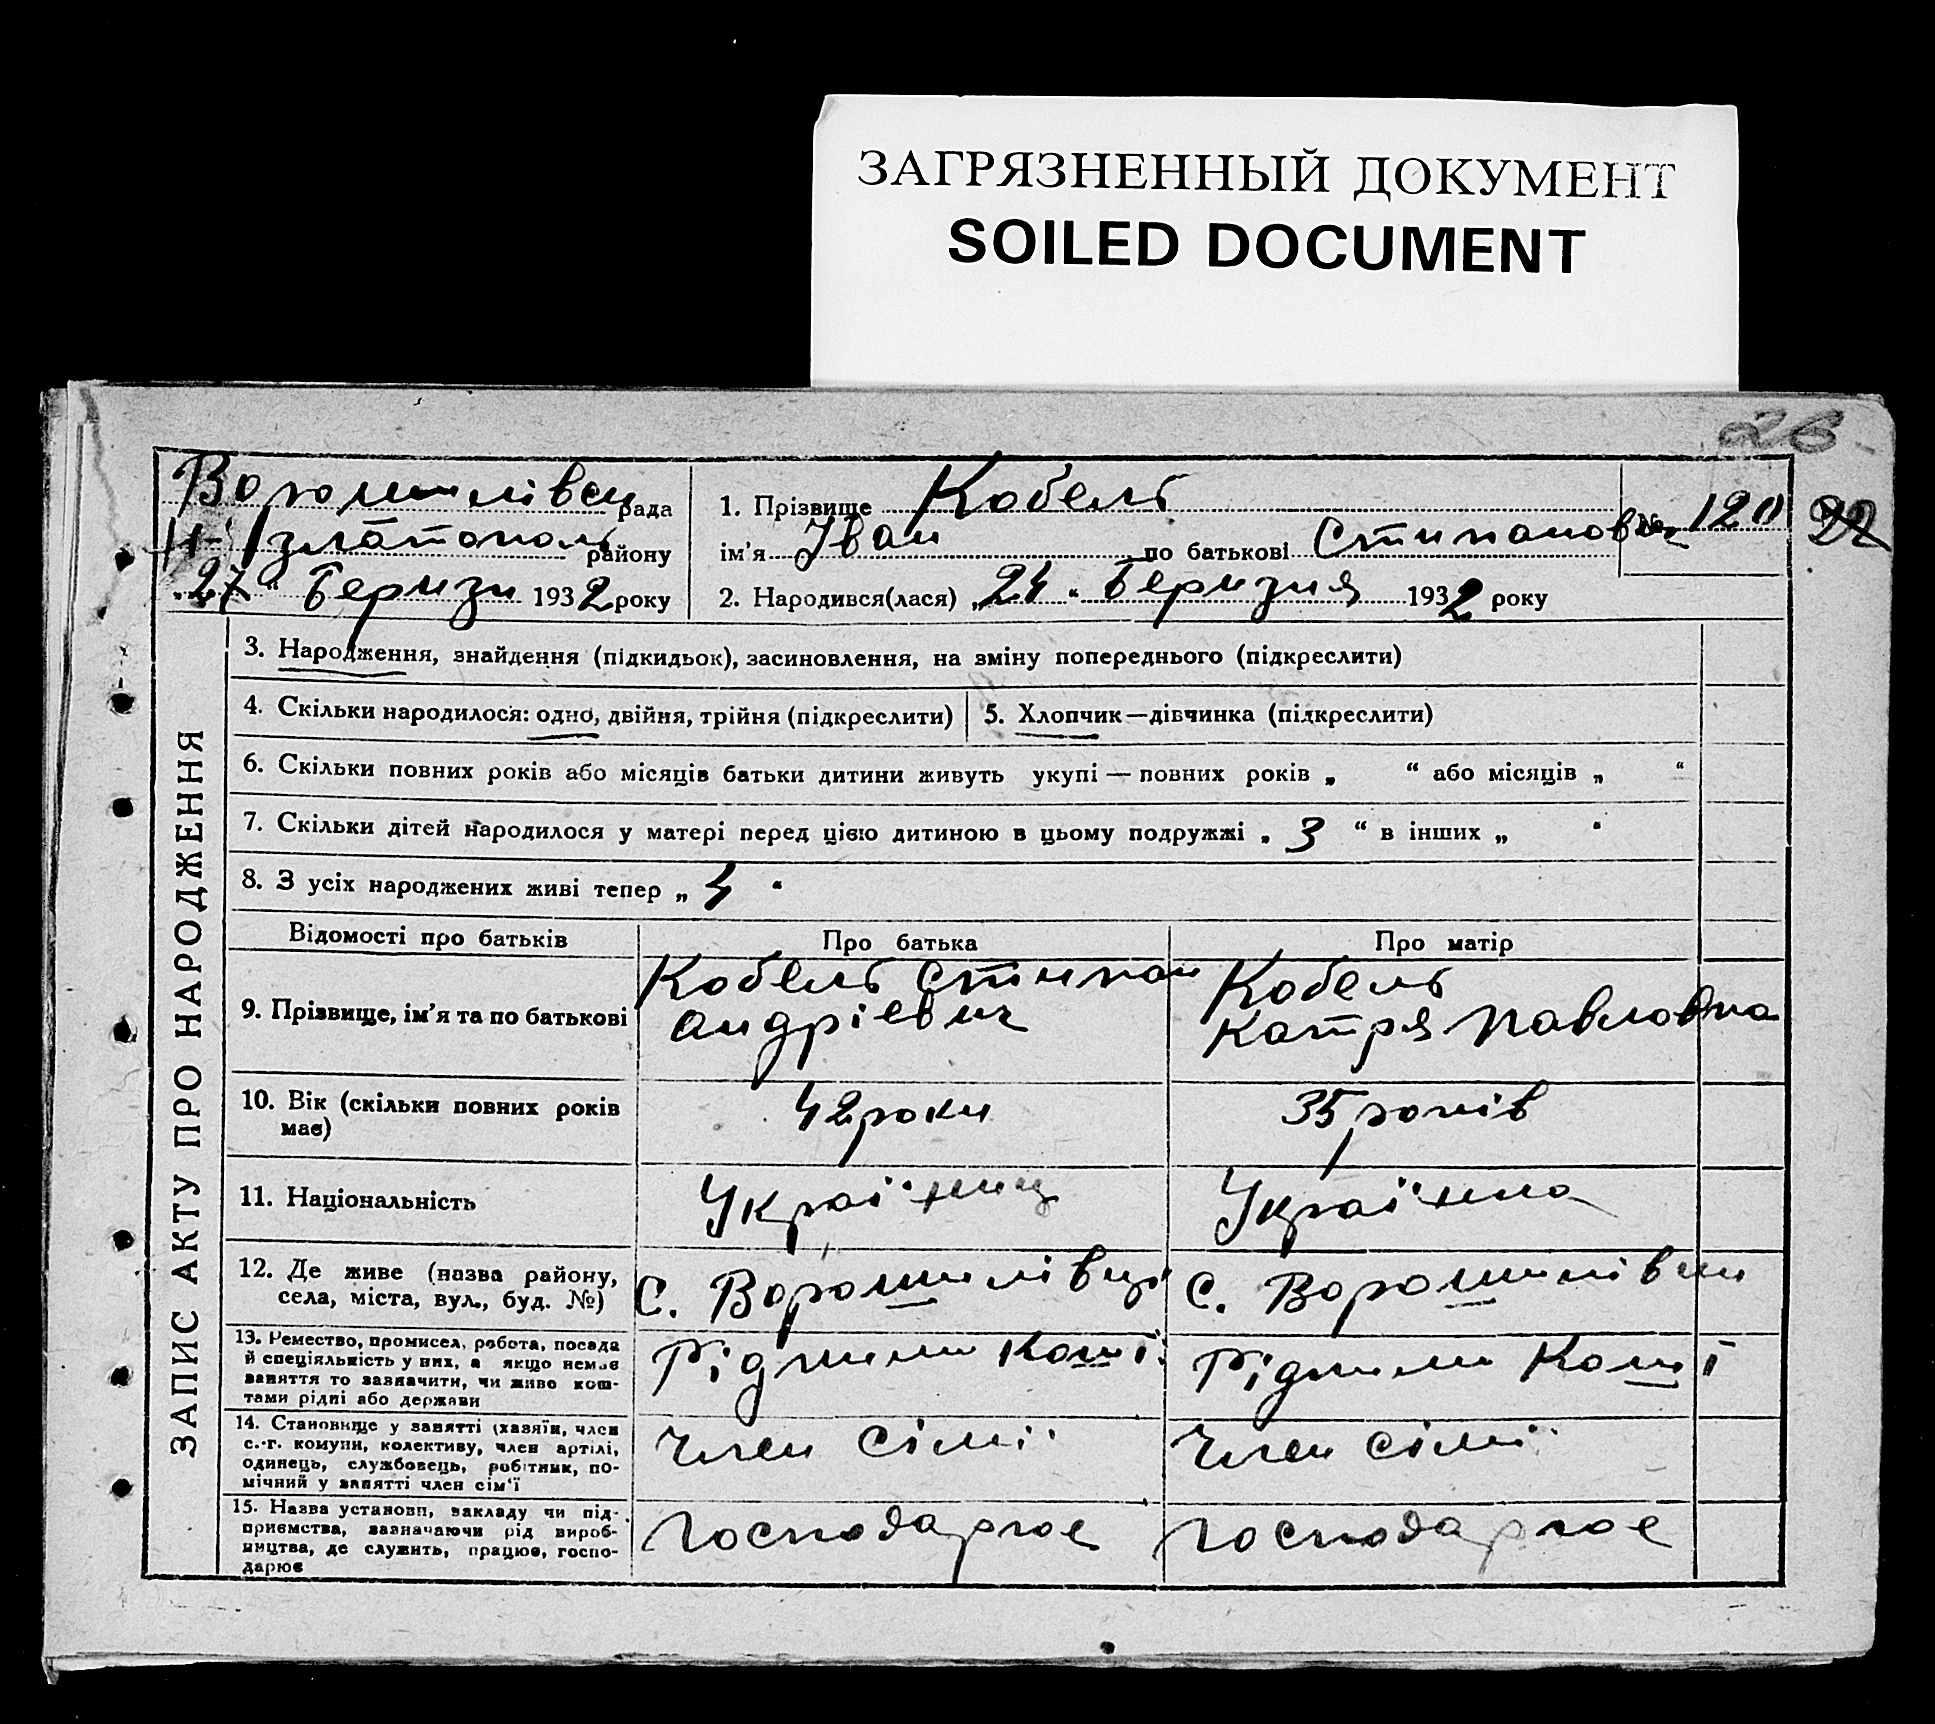 ЗАГРЯЗНЕННЫЙ ДОКУМЕНТ
SOILED DOCUMENT
26
Ворошилівськ рада
Н-Златополь району
„27“ Беризн 1932 року
1. Прізвище Кобель
ім'я Іван по батькові Стипанович
№ 120
22
2. Народився(лася) „24“ Беризня 1932 року
ЗАПИС АКТУ ПРО НАРОДЖЕННЯ
3. Народження, знайдення (підкидьок), засиновлення, на зміну попереднього (підкреслити)
4. Скільки народилося: одно, двійня, трійня (підкреслити)
5. Хлопчик—дівчинка (підкреслити)
6. Скільки повних років або місяців батьки дитини живуть укупі — повних років „ “ або місяців „ “
7. Скільки дітей народилося у матері перед цією дитиною в цьому подружжі „ 3 “ в інших „ “
8. З усіх народжених живі тепер „ 4 “
Відомості про батьків Про батька Про матір
9. Прізвище, ім'я та по батькові
Кобель Стипан
Андріевич
Кобель
Катря Павловна
10. Вік (скільки повних років
має)
42 роки
35 років
11. Національність
Україниц
Українка
12. Де живе (назва району,
села, міста, вул., буд. №)
С. Ворошилівці
С. Ворошилівци
13. Ремество, промисел, робота, посада
й спеціяльність у них, а якщо немає
заняття то зазначити, чи живе кош-
тами рідні або держави
Рідними кошт.
Рідними Кошті
14. Становище у занятті (хазяїн, член
с.-г. комуни, колективу, член артілі,
одинець, службовець, робітник, по-
мічний у занятті член сім'ї
Член сімії
Член сімії
15. Назва установи, закладу чи під-
приємства, зазначаючи рід вироб-
ництва, де служить, працює, госпо-
дарює
Господарює
Господарює